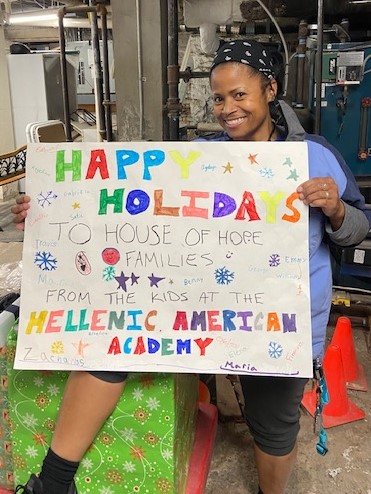 HAPPY
HOLIDAYS
TO HOUSE OF HOPE
FAMILIES
FROM THE KIDS AT THE
HELLENIC AMERICAN
ACADEMY
Travis
Emmy
Zacharias
Maria